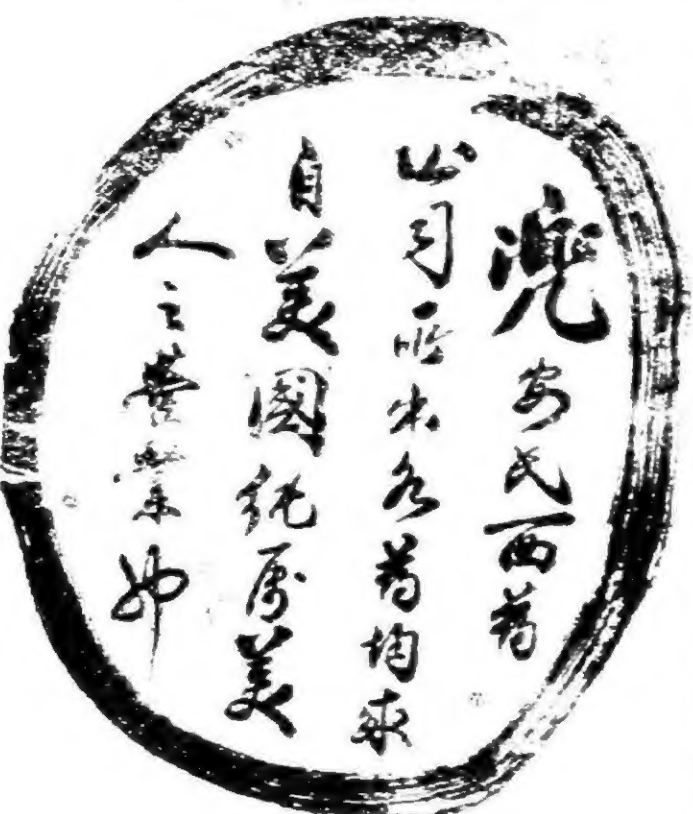 兜安氏西葯
公司所出各葯均來
自美國純属美
人之營業也